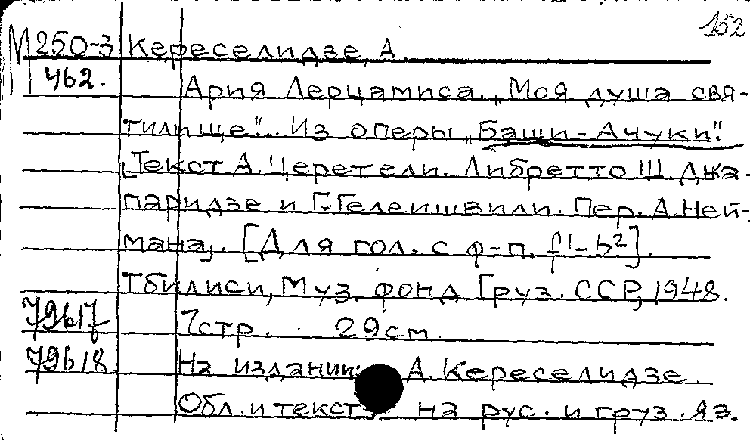 152
М 250-3 Кереселидзе, А.
462.
Ария Лерцамиса „Моя душа свя-
тилище". Из оперы „Баши-Ачуки".
[Текст А. Церетели. Либретто Ш. Джа-
паридзе и Г. Гелеишвили. Пер. А. Ней-
мана]. [Для гол. с ф-п. f1-b2].
Тбилиси, Муз. фонд Груз. ССР, 1948.
79617 7 стр. 29 см.
79618 На издании: А. Кереселидзе.
Обл. и текст на рус. и груз. яз.